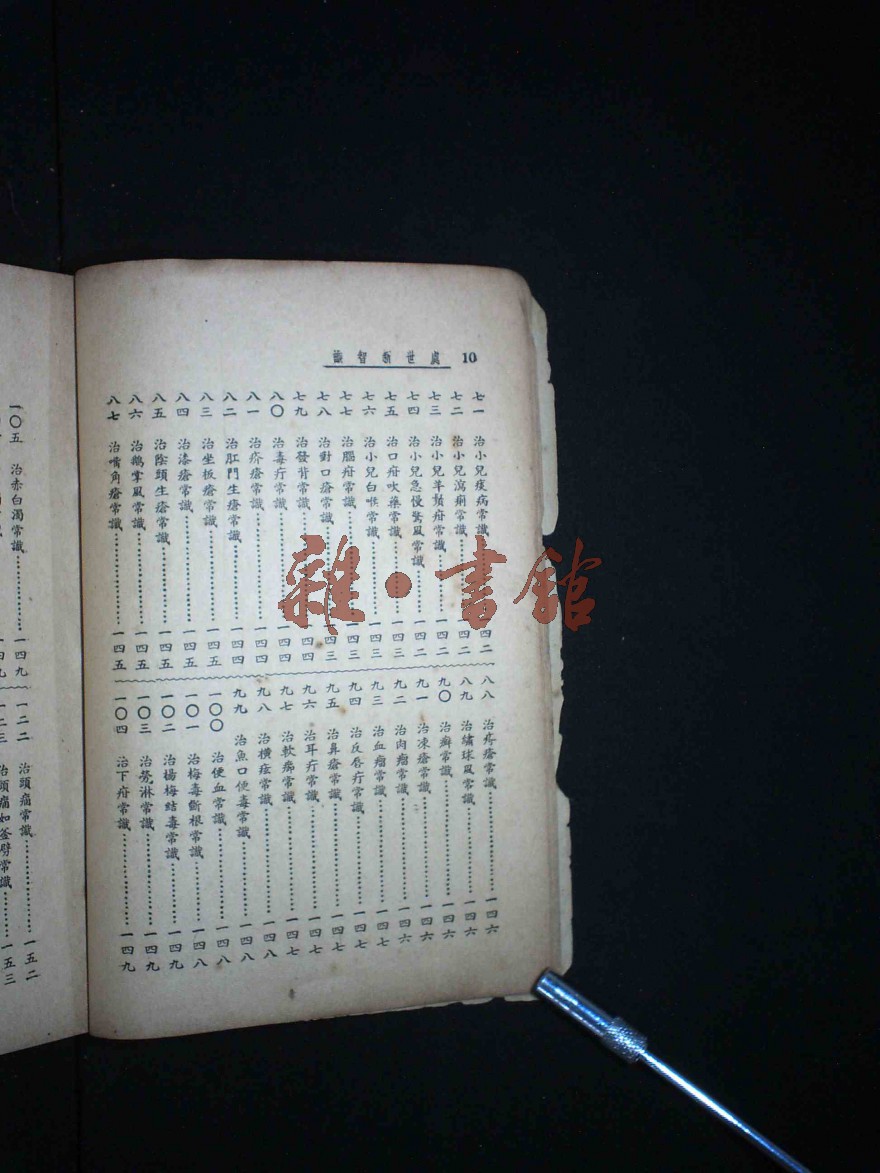 處世新智識 10
七一 治小兒痰病常識……一四二
七二 治小兒瀉痢常識……一四二
七三 治小兒羊鬚疳常識……一四二
七四 治小兒急慢驚風常識……一四二
七五 治口疳吹藥常識……一四三
七六 治小兒白喉常識……一四三
七七 治腦疳常識……一四三
七八 治對口瘡常識……一四三
七九 治發背常識……一四四
八〇 治毒疔常識……一四四
八一 治疥瘡常識……一四四
八二 治肛門生瘡常識……一四四
八三 治坐板瘡常識……一四五
八四 治漆瘡常識……一四五
八五 治陰頭生瘡常識……一四五
八六 治鵝掌風常識……一四五
八七 治嘴角瘡常識……一四五
八八 治痔瘡常識……一四六
八九 治繡球風常識……一四六
九〇 治癬常識……一四六
九一 治凍瘡常識……一四六
九二 治肉瘤常識……一四六
九三 治血瘤常識……一四七
九四 治反唇疔常識……一四七
九五 治鼻瘡常識……一四七
九六 治耳疔常識……一四七
九七 治軟癤常識……一四七
九八 治橫痃常識……一四八
九九 治魚口便毒常識……一四八
一〇〇 治便血常識……一四八
一〇一 治梅毒斷根常識……一四八
一〇二 治楊梅結毒常識……一四九
一〇三 治勞淋常識……一四九
一〇四 治下疳常識……一四九
一〇五 治赤白濁常識……一四九
一二二 治頭痛常識……一五二
一二三 治頭痛如釜劈常識……一五三
雜·書館